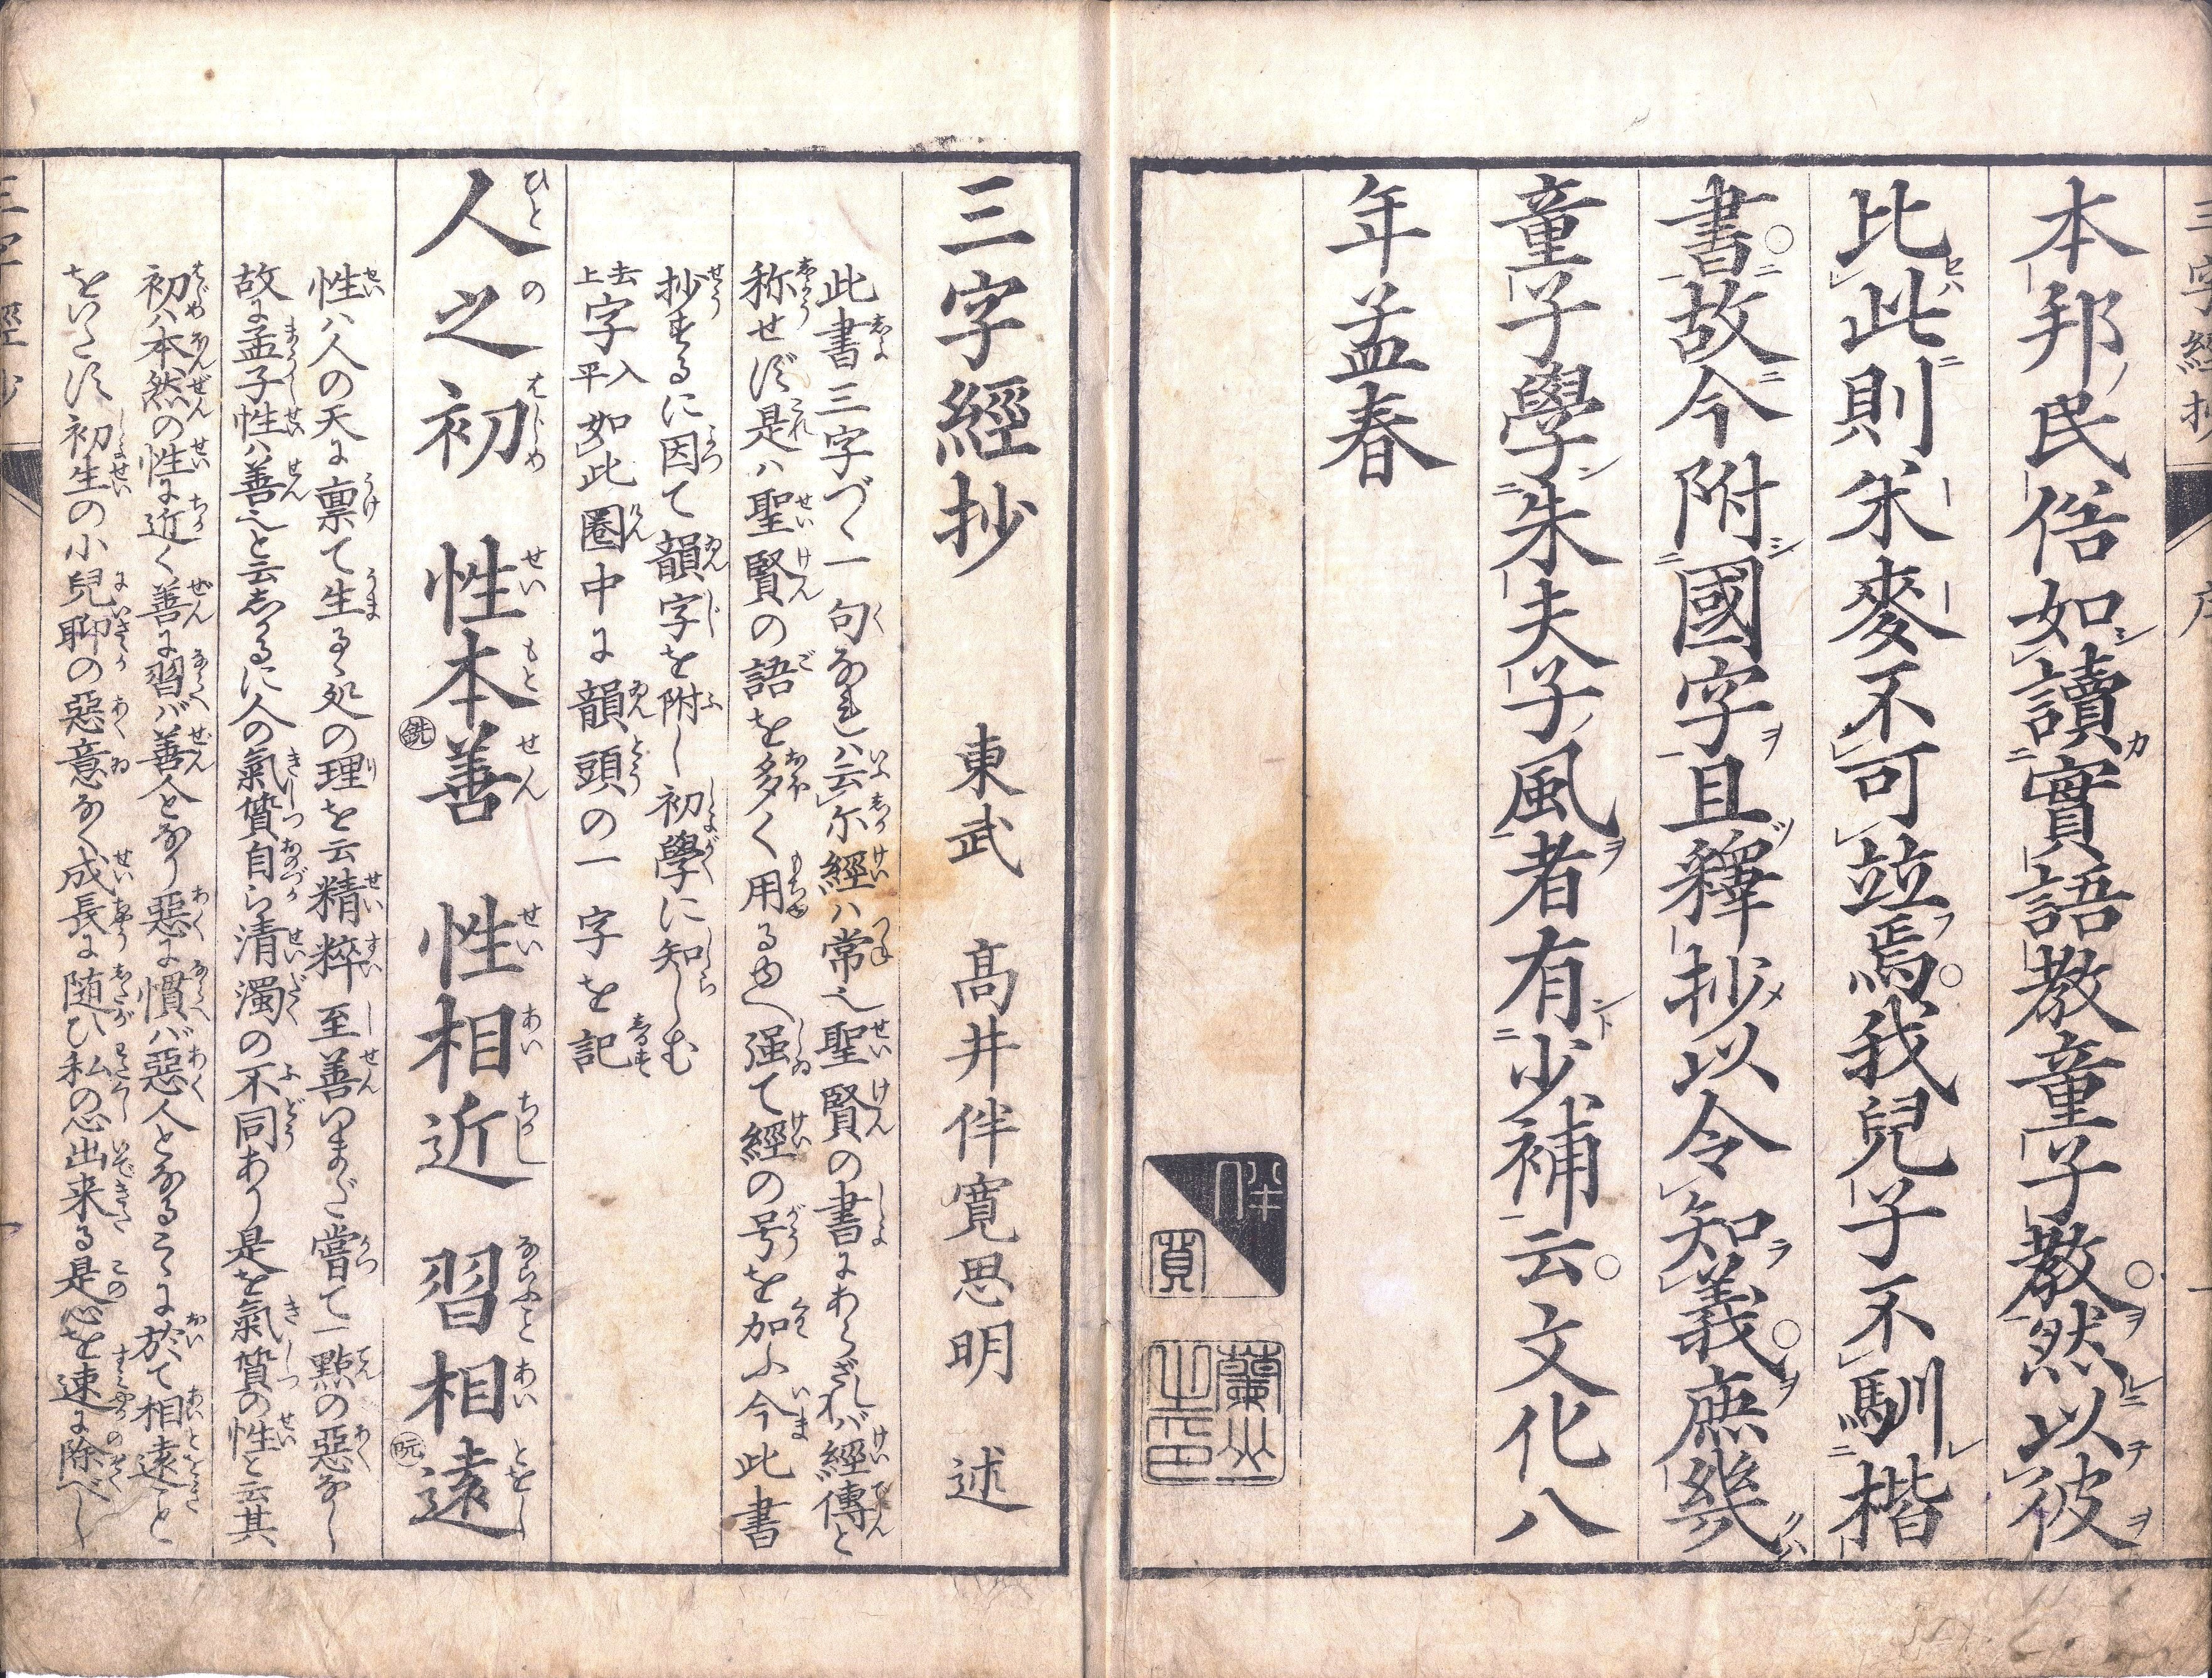 本邦民俗如讀實語教童子教然以彼
比此則米麥不可竝焉我兒子不馴楷
書故今附國字且釋抄以令知義庶幾
童子學朱夫子風者有少補云文化八
年孟春
三字經抄 東武 高井伴寛思明 述
此書三字づゝ一句なれバ云尓經ハ常也聖賢の書にあらざれバ經傳と
称せず是ハ聖賢の語を多く用るゆへ强て經の号を加ふ今此書
抄するに因て韻字を附し初學に知しむ
上去字平入如此圏中に韻頭の一字を記
人之初 性本善 性相近 習相遠
性ハ人の天に禀て生るゝ処の理を云精粹至善いまだ嘗て一點の惡なし
故に孟子性ハ善也と云志かるに人の氣質自ら清濁の不同あり是を氣質の性と云其
初ハ本然の性に近く善に習バ善人となり惡に慣バ惡人となるこゝに於て相遠こと
をいたす初生の小兒聊の惡意なく成長に随ひ私の心出来る是心を速に除べし